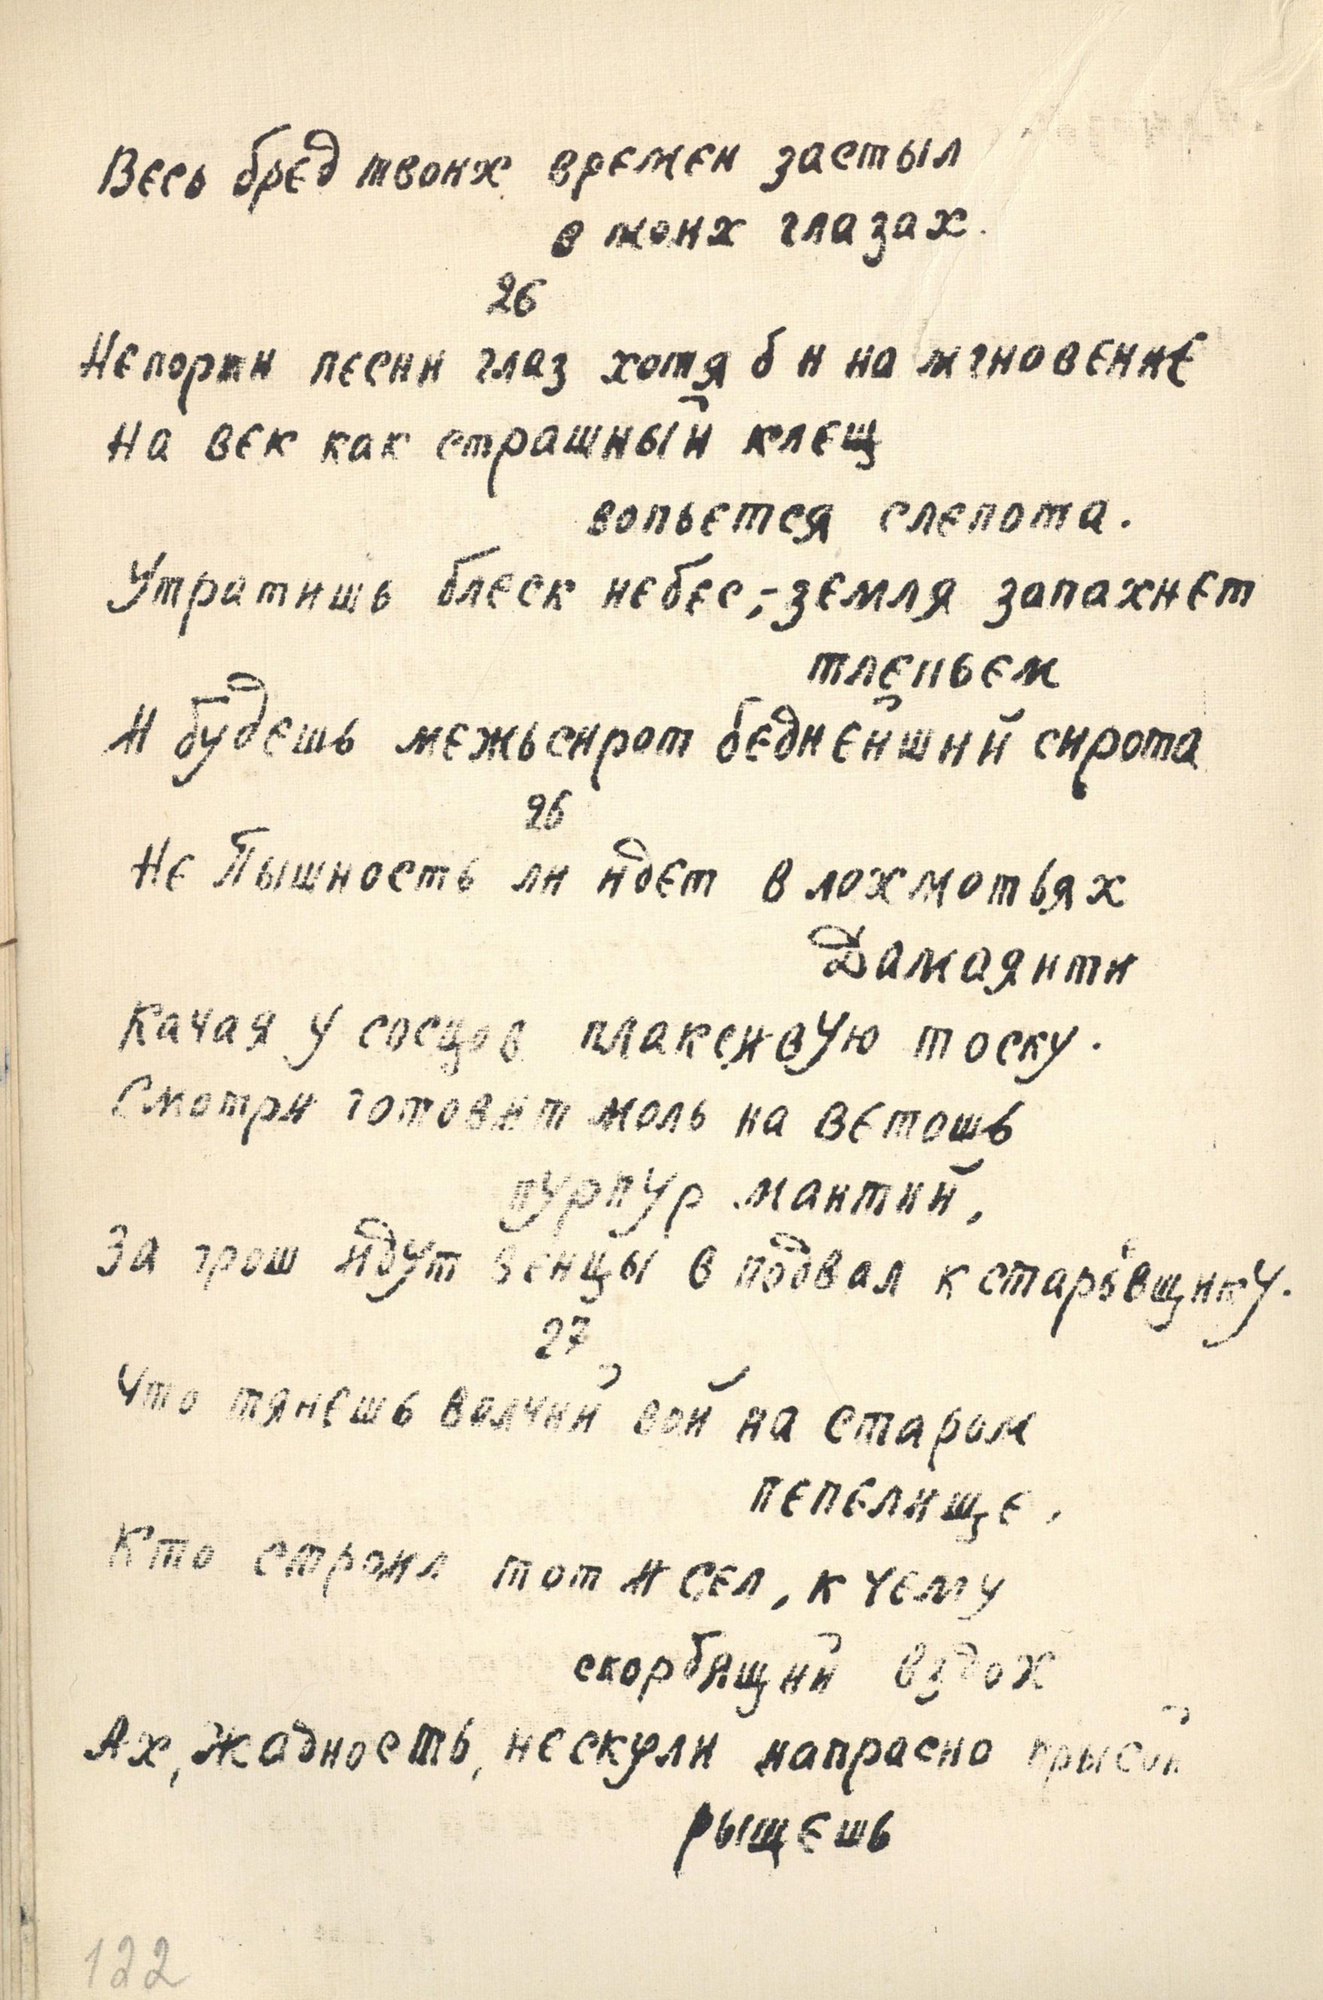 Весь бред твоих времен застыл
в моих глазах.
26
Непорти песни глаз хотя б и на мгновение
На век как страшный клещ
вопьется слепота.
Утратишь блеск небес,-земля запахнет
тленьем
И будешь межь сирот беднейший сирота
26
Не Пышность ли идет в лохмотьях
Дамаянти
Качая у сосцов плаксивую тоску.
Смотри готовит моль на ветошь
пурпур мантий,
За грош идут венцы в подвал к старьёвщику.
27
Что тянешь волчий вой на старом
пепелище,
Кто строил тот и сел, к чему
скорбящий вздох
Ах, Жадность, нескули напрасно крысой
рыщешь
122